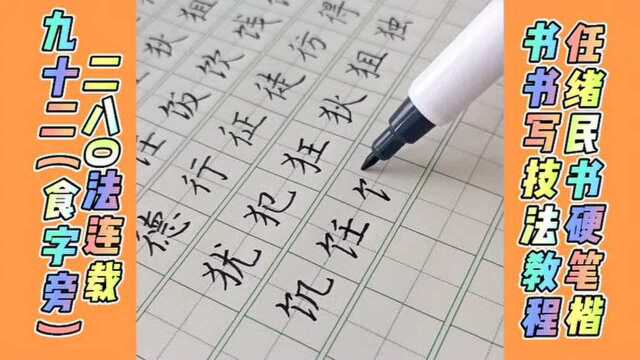 任绪民书硬笔楷
书书写技法教程
二八〇法连载
九十二(食字旁)
狄狙
饪饭饮饯
德行征徒彷得
犹犯狂狄狙独
饥饪饣